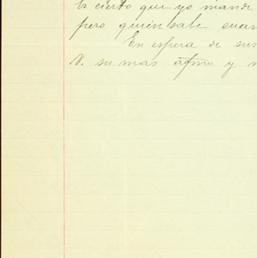 es cierto que yo mande
pero quien sabe cuan
En espera de sus
V. su mas afmo y